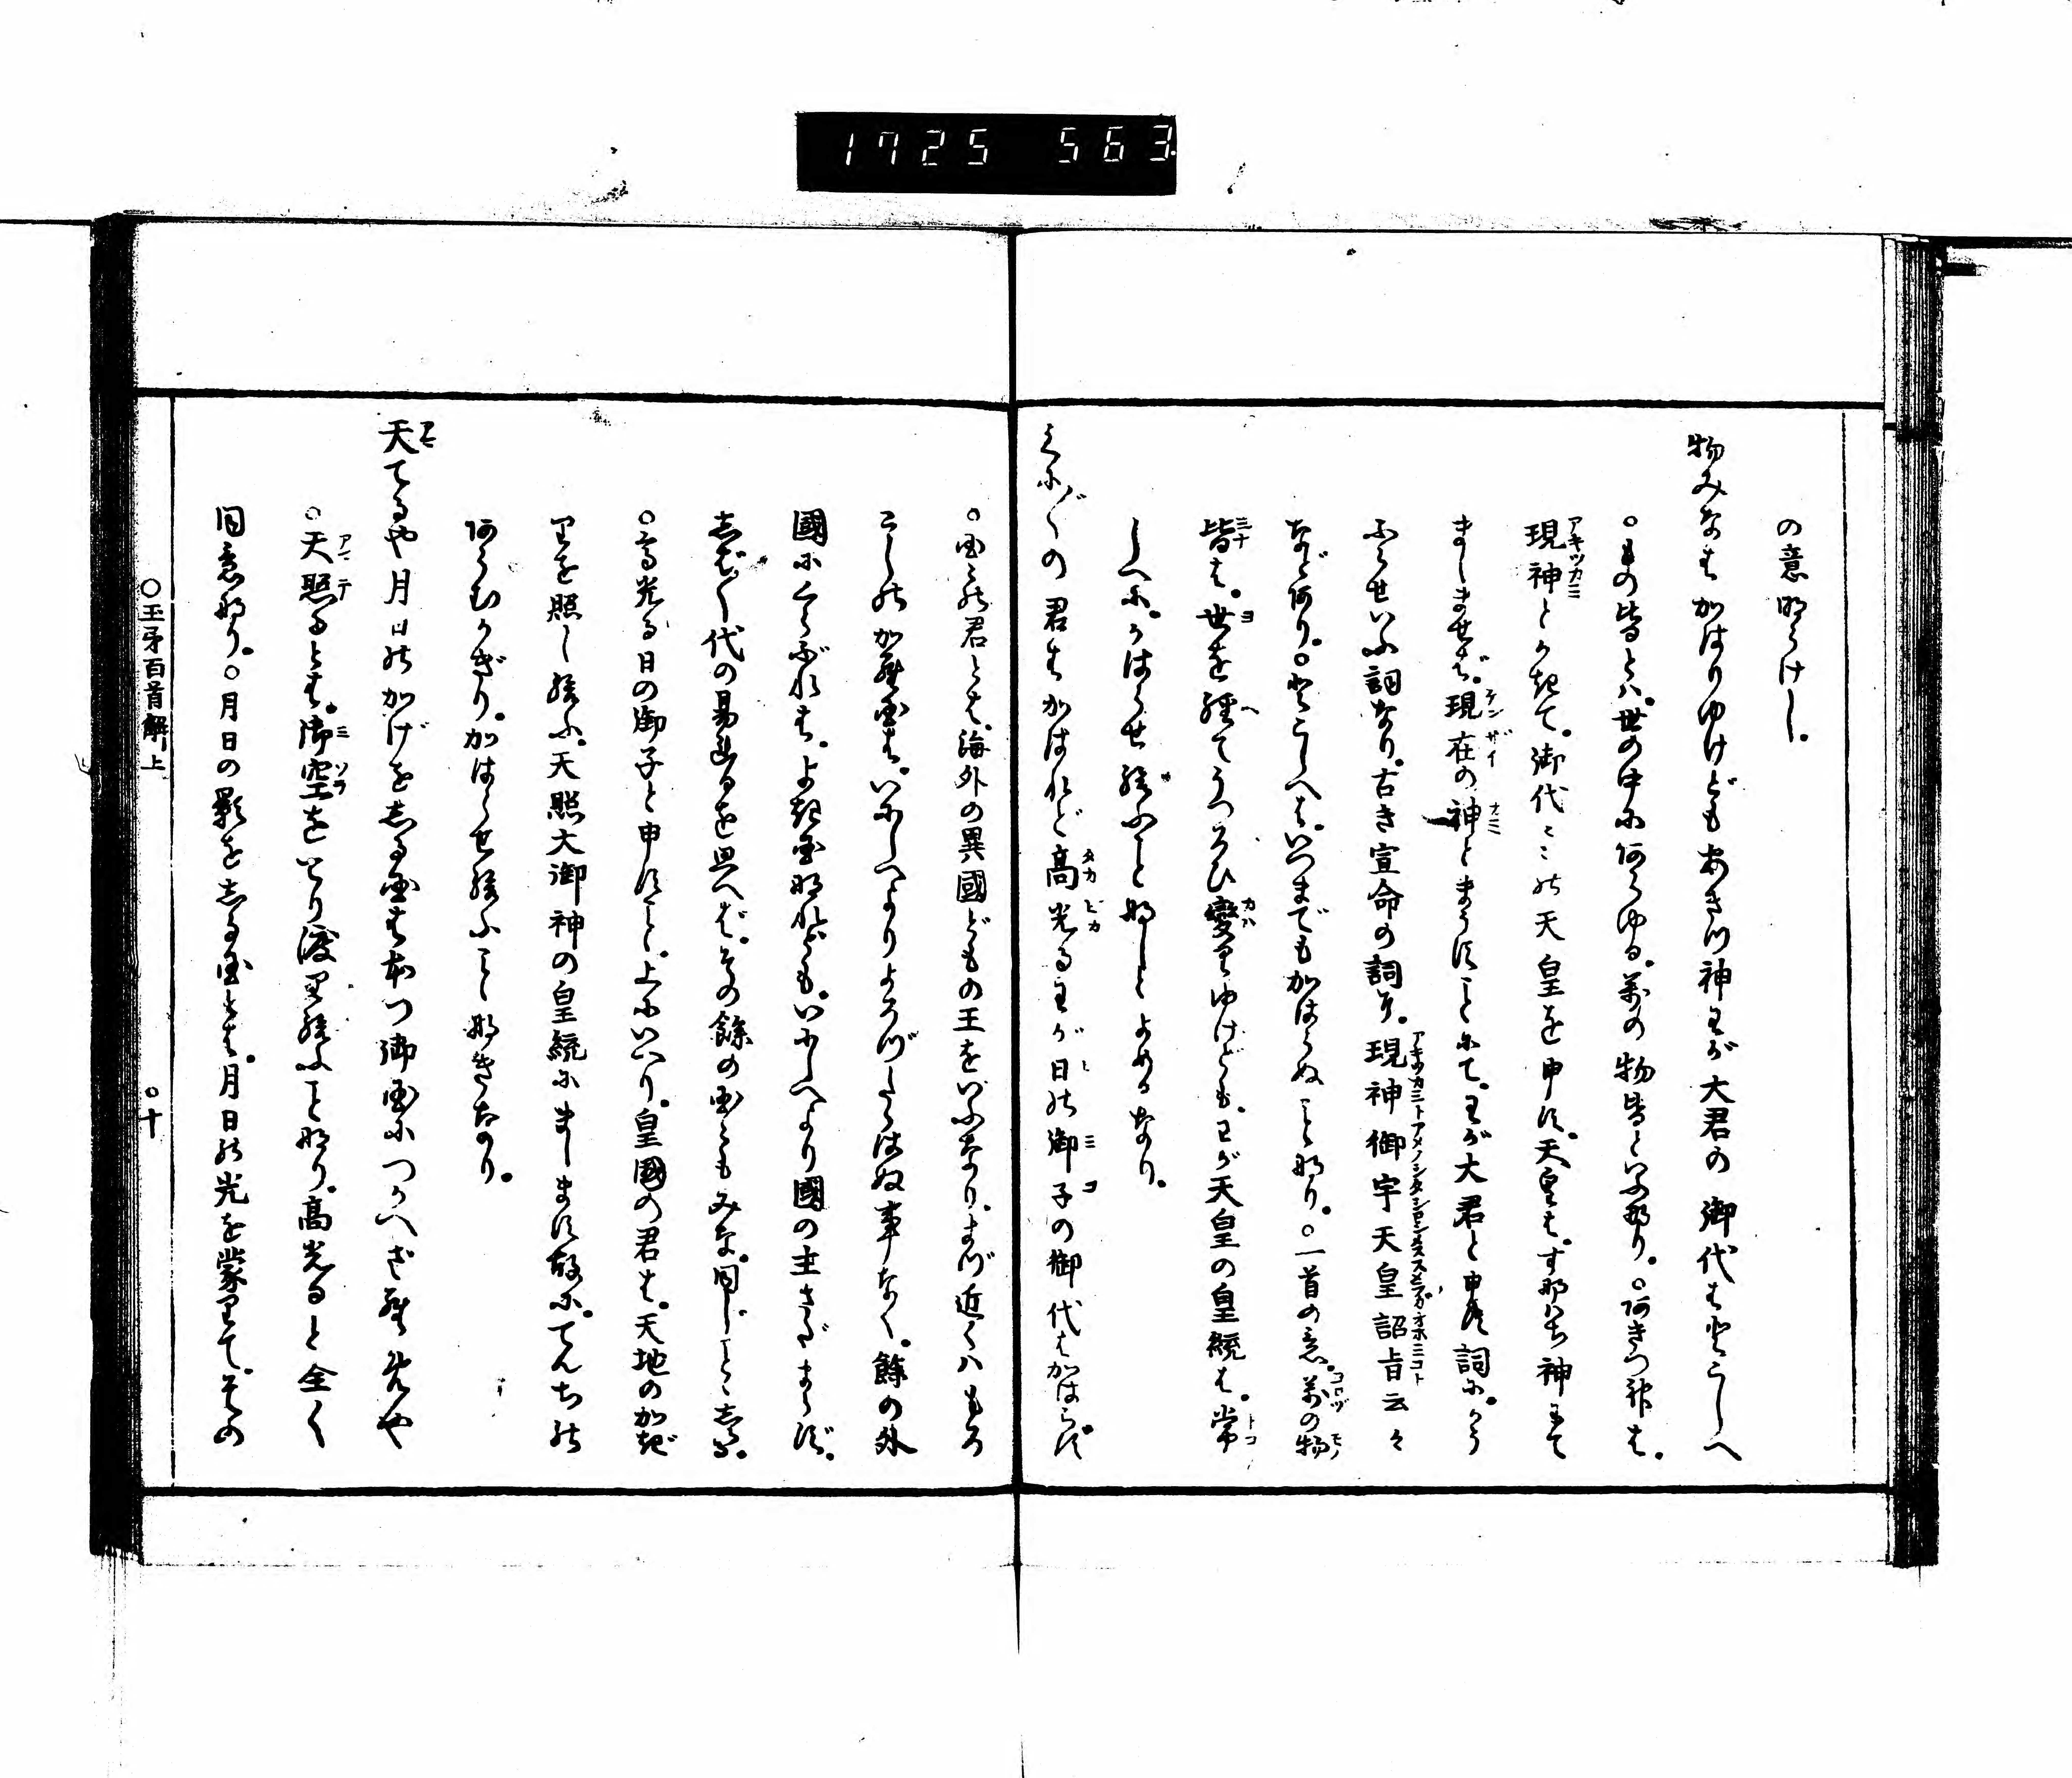 1725 563
の意明らけし。
物みなはかはりゆけどもあきつ神わが大君の御代はとこしへ
○もの皆とハ。世の中にあらゆる。萬の物皆といふ那り。○あきつ神は。
現神とかきて。御代々々の天皇を申す。天皇は。す那はち神にて
ましませば。現在の神とまうすことにて。わが大君と申す詞に。かう
ふらせいふ詞なり。古き宣命の詞に。現神御宇天皇詔旨云々
などあり。○とこしへは。いつまでもかはらぬこと那り。○一首の意。萬の物
皆は。世を経てうつろひ變りゆけども。わが天皇の皇統は。常
しへに。かはらせ給ふこと那しとよめるなり。
くに〴〵の君はかはれど高光るわが日の御子の御代はかはらず
○国々の君とは。海外の異國どもの王をいふなり。まづ近くハもろ
こしの加羅国は。いにしへよりよろづたらはぬ事なく。餘の外
國にくらぶれば。よき国那れども。いにしへより國の主さだまらず。
志ば〳〵代の易れるを思へば。その餘の国々もみな。同じこと志るし。
○高光る日の御子と申すこと。上にいへり。皇國の君は。天地のかぎ
りを照し給ふ。天照大御神の皇統にまします故に。てんちの
あらむかぎり。かはらせ給ふこと那きなり。
天てるや月日のかげを志る国は本つ御国につかへざらめや
○天照るとは。御空をとり渡り給ふこと那り。高光ると全く
同意那り。○月日の影を志る国とは。月日の光を蒙りて。その
○玉矛百首解上
○十